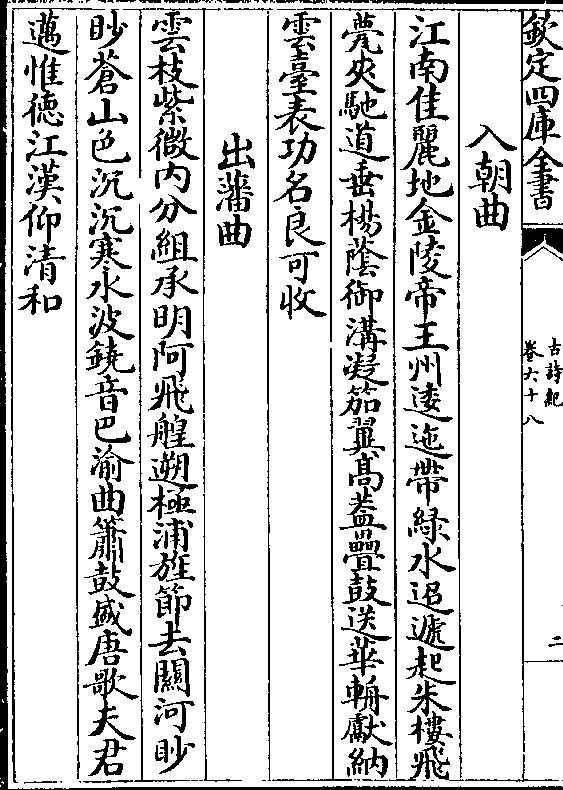 欽定四庫全書
古詩紀
卷六十八
二
入朝曲
江南佳麗地金陵帝王州逶迤帶綠水迢遞起朱樓飛
甍夾馳道垂楊蔭御溝凝笳翼高蓋疊鼓送華輈獻納
雲臺表功名良可收
出藩曲
雲枝紫微内分組承明阿飛艎遡極浦旌節去關河眇
眇蒼山色沉沉寒水波鐃音巴渝曲簫鼓盛唐歌夫君
邁惟德江漢仰清和